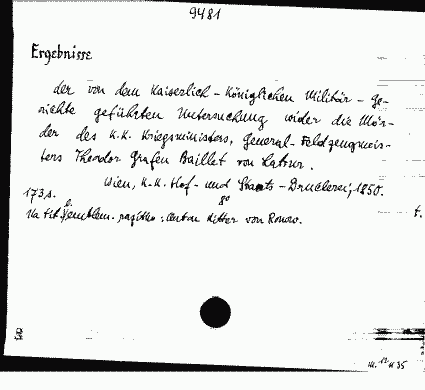 9481
Ergebnisse
der von dem Kaiserlich-Königlichen Militär-Ge-
richte geführten Untersuchung wider die Mör-
der des K.K. Kriegsministers, General-Feldzeugmeis-
ters Theodor Grafen Baillet von Latour.
Wien, K.K. Hof- und Staats-Druckerei, 1850.
173 s. 8°
Na tit. l. : Anton Ritter von Ronow.
t.